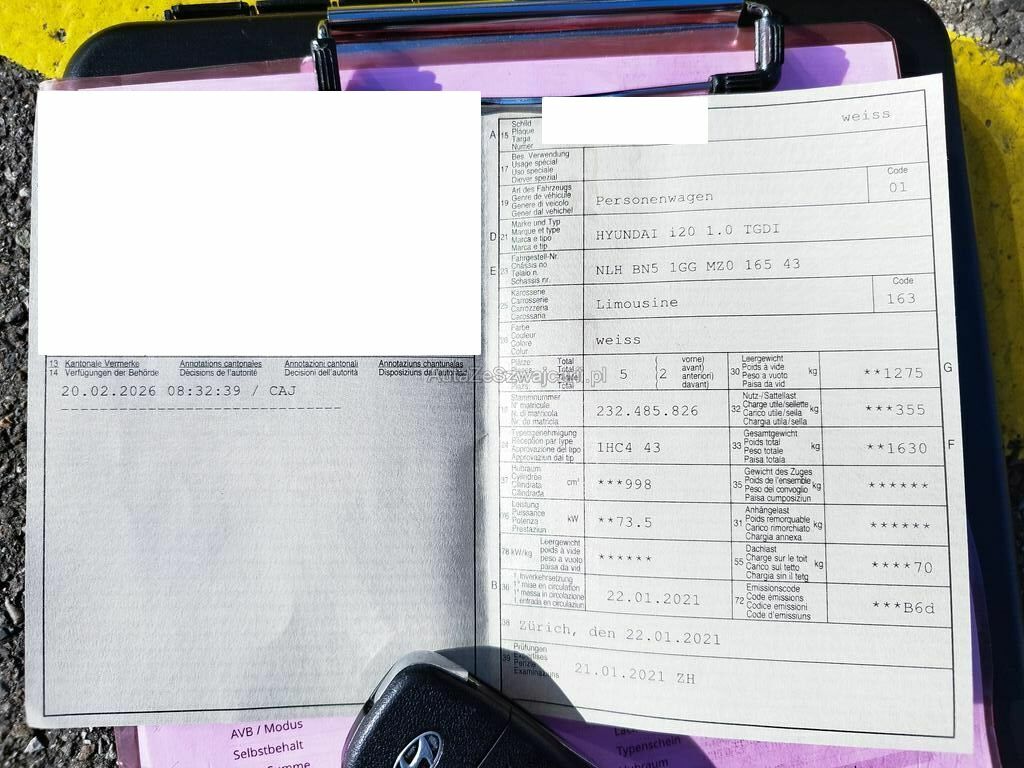 weiss
A 15 Schild
Plaque
Targa
Numer
17 Bes. Verwendung
Usage spécial
Uso speciale
Diever spezial
19 Art des Fahrzeugs
Genre de véhicule
Genere di veicolo
Gener dal vehichel
Personenwagen
Code
01
D 21 Marke und Typ
Marque et type
Marca e tipo
Marca e tip
HYUNDAI i20 1.0 TGDI
E 23 Fahrgestell-Nr.
Châssis no
Telaio n.
Schassis nr.
NLH BN5 1GG MZ0 165 43
25 Karosserie
Carrosserie
Carrozzeria
Carossaria
Limousine
Code
163
Farbe
Couleur
Colore
Colur
weiss
Total
5 (2
vorne)
avant)
anteriori)
davant)
30 Leergewicht
Poids à vide
Peso a vuoto
Paisa da vid
kg
**1275
G
Stammnummer
N° matricule
N. di matricola
Nr. da matricla
232.485.826
32 Nutz-/Sattellast
Charge utile/sellette
Carico utile/sella
Chargia utila/sella
kg
***355
Typengenehmigung
Réception par type
Approvazione del tipo
Approvaziun dal tip
1HC4 43
33 Gesamtgewicht
Poids total
Peso totale
Paisa totala
kg
**1630
F
37 Hubraum
Cylindrée
Cilindrata
Cilindrada
cm³
***998
35 Gewicht des Zuges
Poids de l'ensemble
Peso del convoglio
Paisa cumposiziun
kg
******
76 Leistung
Puissance
Potenza
Prestaziun
kW
**73.5
31 Anhängelast
Poids remorquable
Carico rimorchiato
Chargia annexa
kg
******
78 kW/kg
Leergewicht
poids à vide
peso a vuoto
paisa da vid
******
55 Dachlast
Charge sur le toit
Carico sul tetto
Chargia sin il tetg
kg
****70
B 36 1. Inverkehrsetzung
1re mise en circulation
1a messa in circolazione
1. entrada en circulaziun
22.01.2021
72 Emissionscode
Code émissions
Codice emissioni
Code d'emissiuns
***B6d
38 Zürich, den 22.01.2021
39 Prüfungen
Expertises
Perizie
Examinaziuns
21.01.2021 ZH
13 Kantonale Vermerke Annotations cantonales Annotazioni cantonali Annotaziuns chantunalas
14 Verfügungen der Behörde Décisions de l'autorité Decisioni dell'autorità Disposiziuns da l'autoritad
20.02.2026 08:32:39 / CAJ
AutazeSzwajcarii.pl
AVB / Modus
Selbstbehalt
Typenschein
Hubraum